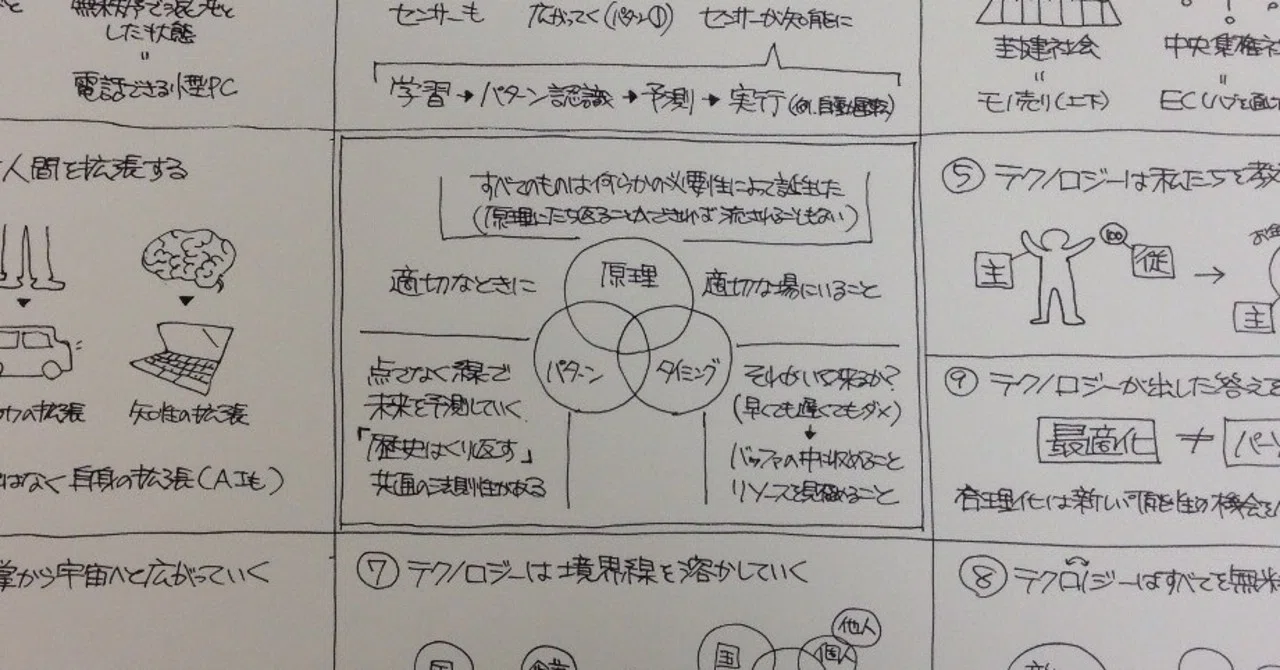 無秩序で混とん
した状態
=
電話できる小型PC
センサーも 広がってく(パターン①) センサーが知能に
学習→パターン認識→予測→実行(例.自動運転)
封建社会
=
モノ売り(上下)
中央集権社
=
EC(ハブを通じ
人間を拡張する
の拡張
知性の拡張
はなく自身の拡張(AIも)
すべてのものは何らかの必要性によって誕生した
(原理にたち返ることができれば流されることもない)
適切なときに
原理
適切な場にいること
パターン
タイミング
点でなく線で
未来を予測していく
「歴史はくり返す」
共通の法則性がある
それがいつ来るか?
(早くても遅くてもダメ)
↓
バッファの中に収めること
リソースを見極めること
⑤ テクノロジーは私たちを教
主
100
従
→
お金
主
⑨ テクノロジーが出した答えを
最適化 ≠ パー
合理化は新しい 機会を
掌から宇宙へと広がっていく
⑦ テクノロジーは境界線を溶かしていく
国
国
個人
他人
⑧ テクノロジーはすべてを無料